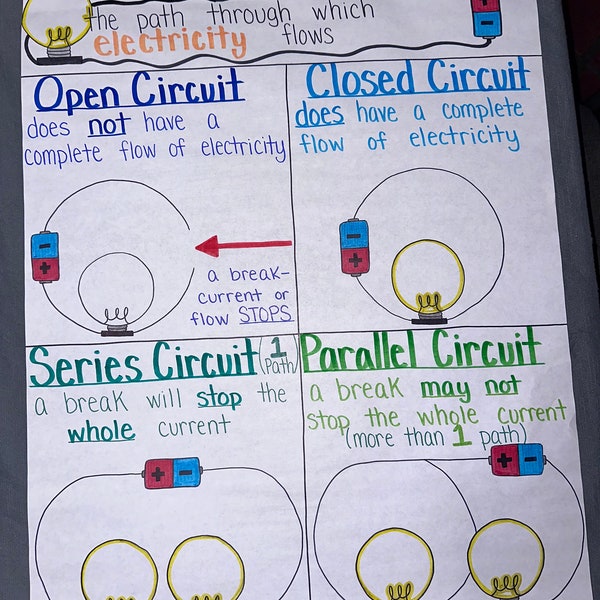 the path through which
electricity flows
Open Circuit
does not have a
complete flow of electricity
a break-
current or
flow STOPS
Closed Circuit
does have a complete
flow of electricity
Series Circuit (1 Path)
a break will stop the
whole current
Parallel Circuit
a break may not
stop the whole current
(more than 1 path)